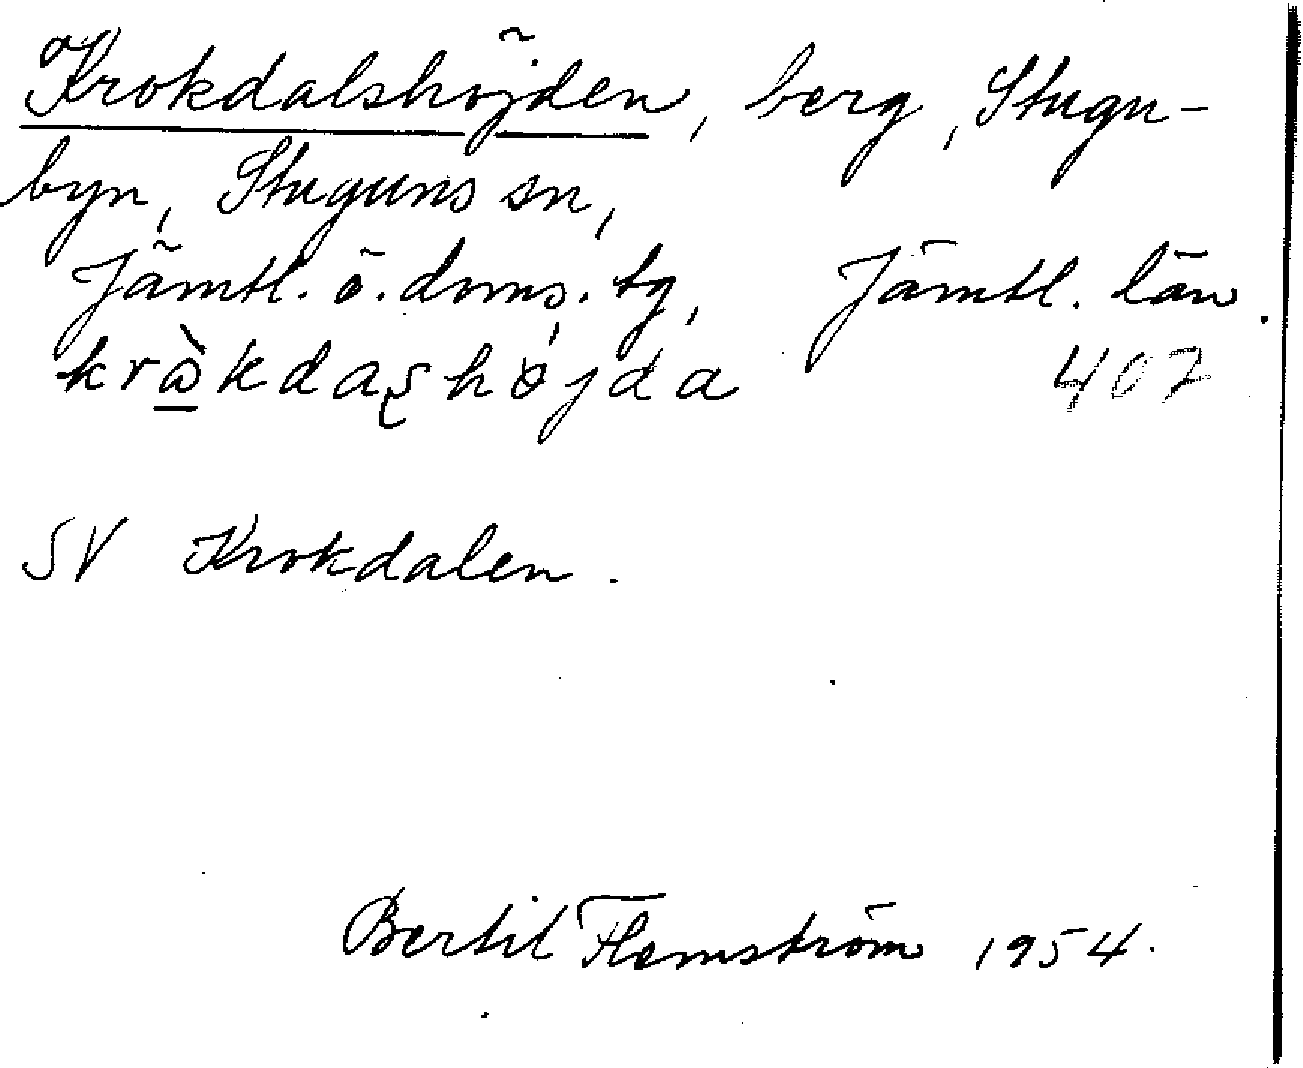 Krokdalshöjden, berg, Stugu-
byn, Stuguns sn,
Jämtl. ö. doms. tg, Jämtl. län.
407
SV Krokdalen.
Bertil Flemström 1954.